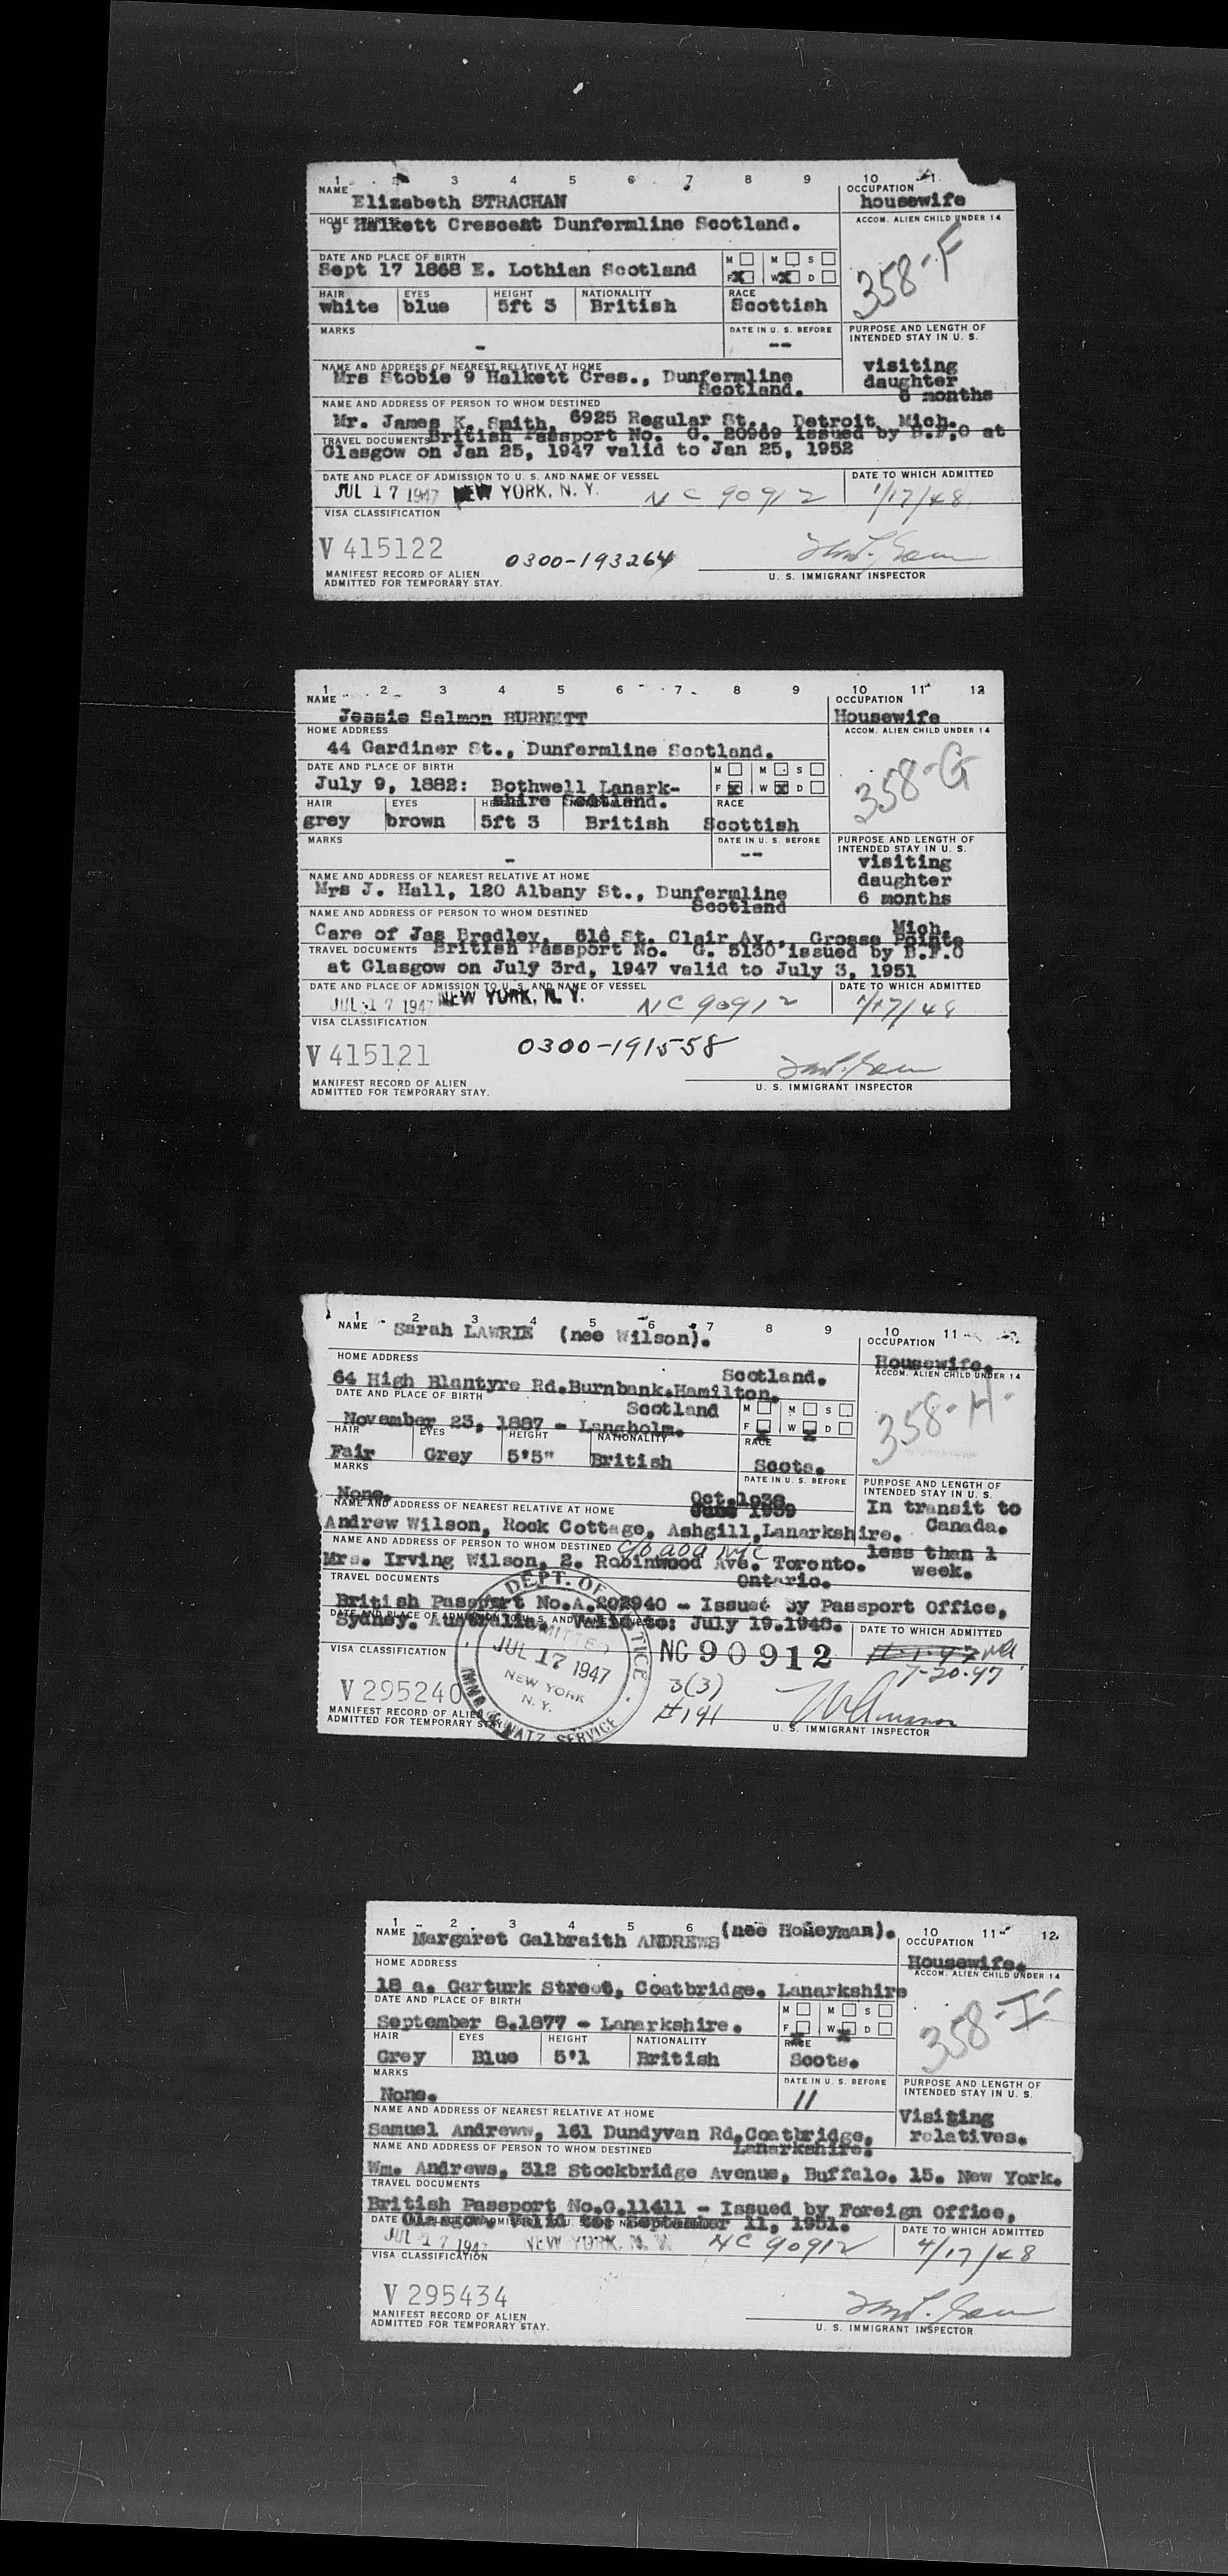 1 2 3 4 5 6 7 8 9 10 11
NAME Elizabeth STRACHAN
OCCUPATION housewife
HOME ADDRESS
9 Halkett Crescent Dunfermline Scotland.
ACCOM. ALIEN CHILD UNDER 14
358-F
DATE AND PLACE OF BIRTH
M M S
Sept 17 1868 E. Lothian Scotland
F X W X D
HAIR EYES HEIGHT NATIONALITY RACE
white blue 5ft 3 British Scottish
MARKS DATE IN U. S. BEFORE
- --
PURPOSE AND LENGTH OF
INTENDED STAY IN U. S.
visiting
daughter
6 months
NAME AND ADDRESS OF NEAREST RELATIVE AT HOME
Mrs Stobie 9 Halkett Cres., Dunfermline
Scotland.
NAME AND ADDRESS OF PERSON TO WHOM DESTINED
Mr. James K. Smith, 6925 Regular St., Detroit, Mich.
TRAVEL DOCUMENTS British Passport No. G. 20969 issued by B.F.O at
Glasgow on Jan 25, 1947 valid to Jan 25, 1952
DATE AND PLACE OF ADMISSION TO U. S. AND NAME OF VESSEL DATE TO WHICH ADMITTED
JUL 17 1947 NEW YORK, N. Y. NC 90912 1/17/48
VISA CLASSIFICATION
V 415122 0300-193264
MANIFEST RECORD OF ALIEN
ADMITTED FOR TEMPORARY STAY.
U. S. IMMIGRANT INSPECTOR
1 2 3 4 5 6 7 8 9 10 11 12
NAME Jessie Salmon BURNETT
OCCUPATION Housewife
HOME ADDRESS
44 Gardiner St., Dunfermline Scotland.
ACCOM. ALIEN CHILD UNDER 14
358-G
DATE AND PLACE OF BIRTH
M M S
July 9, 1882: Bothwell Lanark-
shire Scotland.
F X W X D
HAIR EYES HEIGHT NATIONALITY RACE
grey brown 5ft 3 British Scottish
MARKS DATE IN U. S. BEFORE
- --
PURPOSE AND LENGTH OF
INTENDED STAY IN U. S.
visiting
daughter
6 months
NAME AND ADDRESS OF NEAREST RELATIVE AT HOME
Mrs J. Hall, 120 Albany St., Dunfermline
Scotland
NAME AND ADDRESS OF PERSON TO WHOM DESTINED
Mich.
Care of Jas Bradley, 616 St. Clair Av., Grosse Pointe
TRAVEL DOCUMENTS British Passport No. G. 5130 issued by B.F.O
at Glasgow on July 3rd, 1947 valid to July 3, 1951
DATE AND PLACE OF ADMISSION TO U. S. AND NAME OF VESSEL DATE TO WHICH ADMITTED
JUL 17 1947 NEW YORK, N. Y. NC 90912 1/17/48
VISA CLASSIFICATION
V 415121 0300-191558
MANIFEST RECORD OF ALIEN
ADMITTED FOR TEMPORARY STAY.
U. S. IMMIGRANT INSPECTOR
1 2 3 4 5 6 7 8 9 10 11
NAME Sarah LAWRIE (nee Wilson).
OCCUPATION Housewife.
HOME ADDRESS
Scotland.
64 High Blantyre Rd.Burnbank.Hamilton.
ACCOM. ALIEN CHILD UNDER 14
358-H
DATE AND PLACE OF BIRTH
Scotland
November 23, 1887 - Langholm.
M M S
F X W X D
HAIR EYES HEIGHT NATIONALITY RACE
Fair Grey 5'5" British Scots.
MARKS DATE IN U. S. BEFORE
None. Oct.1938
June 1939
PURPOSE AND LENGTH OF
INTENDED STAY IN U. S.
In transit to
Canada.
less than 1
week.
NAME AND ADDRESS OF NEAREST RELATIVE AT HOME
Andrew Wilson, Rock Cottage, Ashgill,Lanarkshire.
NAME AND ADDRESS OF PERSON TO WHOM DESTINED
Mrs. Irving Wilson, 2. Robinwood Ave. Toronto.
Ontario.
TRAVEL DOCUMENTS
British Passport No.A.202940 - Issued by Passport Office,
Sydney. Australia. Valid to: July 19.1948.
DATE AND PLACE OF ADMISSION TO U. S. AND NAME OF VESSEL
DATE TO WHICH ADMITTED
VISA CLASSIFICATION
DEPT. OF JUSTICE
ADMITTED
JUL 17 1947
NEW YORK
N. Y.
IMMG. & NATZ. SERVICE
NC 90912
7-20-47
V 295240 3(3)
#191
MANIFEST RECORD OF ALIEN
ADMITTED FOR TEMPORARY STAY.
U. S. IMMIGRANT INSPECTOR
1 2 3 4 5 6 10 11 12
NAME Margaret Galbraith ANDREWS (nee Honeyman).
OCCUPATION Housewife.
HOME ADDRESS
18 a. Garturk Street, Coatbridge. Lanarkshire
ACCOM. ALIEN CHILD UNDER 14
358-I
DATE AND PLACE OF BIRTH
M M S
September 8.1877 - Lanarkshire.
F X W X D
HAIR EYES HEIGHT NATIONALITY RACE
Grey Blue 5'1 British Scots.
MARKS DATE IN U. S. BEFORE
None. 11
PURPOSE AND LENGTH OF
INTENDED STAY IN U. S.
Visiting
relatives.
NAME AND ADDRESS OF NEAREST RELATIVE AT HOME
Samuel Andreww, 161 Dundyvan Rd.Coatbridge,
Lanarkshire.
NAME AND ADDRESS OF PERSON TO WHOM DESTINED
Wm. Andrews, 312 Stockbridge Avenue, Buffalo. 15. New York.
TRAVEL DOCUMENTS
British Passport No.G.11411 - Issued by Foreign Office,
Glasgow. Valid to: September 11, 1951.
DATE AND PLACE OF ADMISSION TO U. S. AND NAME OF VESSEL DATE TO WHICH ADMITTED
JUL 17 1947 NEW YORK, N. Y. NC 90912 4/17/48
VISA CLASSIFICATION
V 295434
MANIFEST RECORD OF ALIEN
ADMITTED FOR TEMPORARY STAY.
U. S. IMMIGRANT INSPECTOR